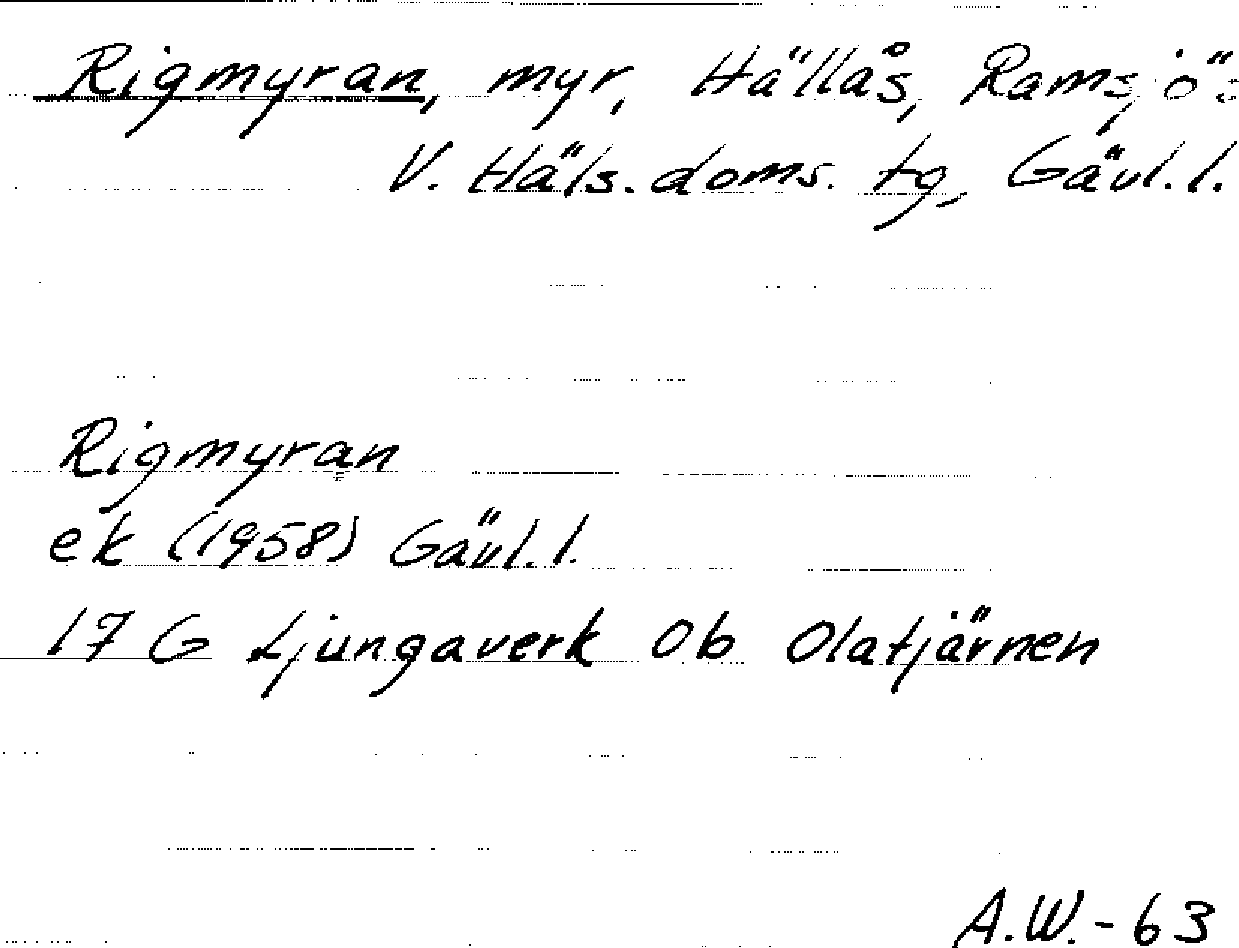 Rigmyran, myr, Hällås, Ramsjö s
V. Häls. doms. tg, Gävl. l.
Rigmyran
ek (1958) Gävl. l.
17 G Ljungaverk Ob Olatjärnen
A.W.-63